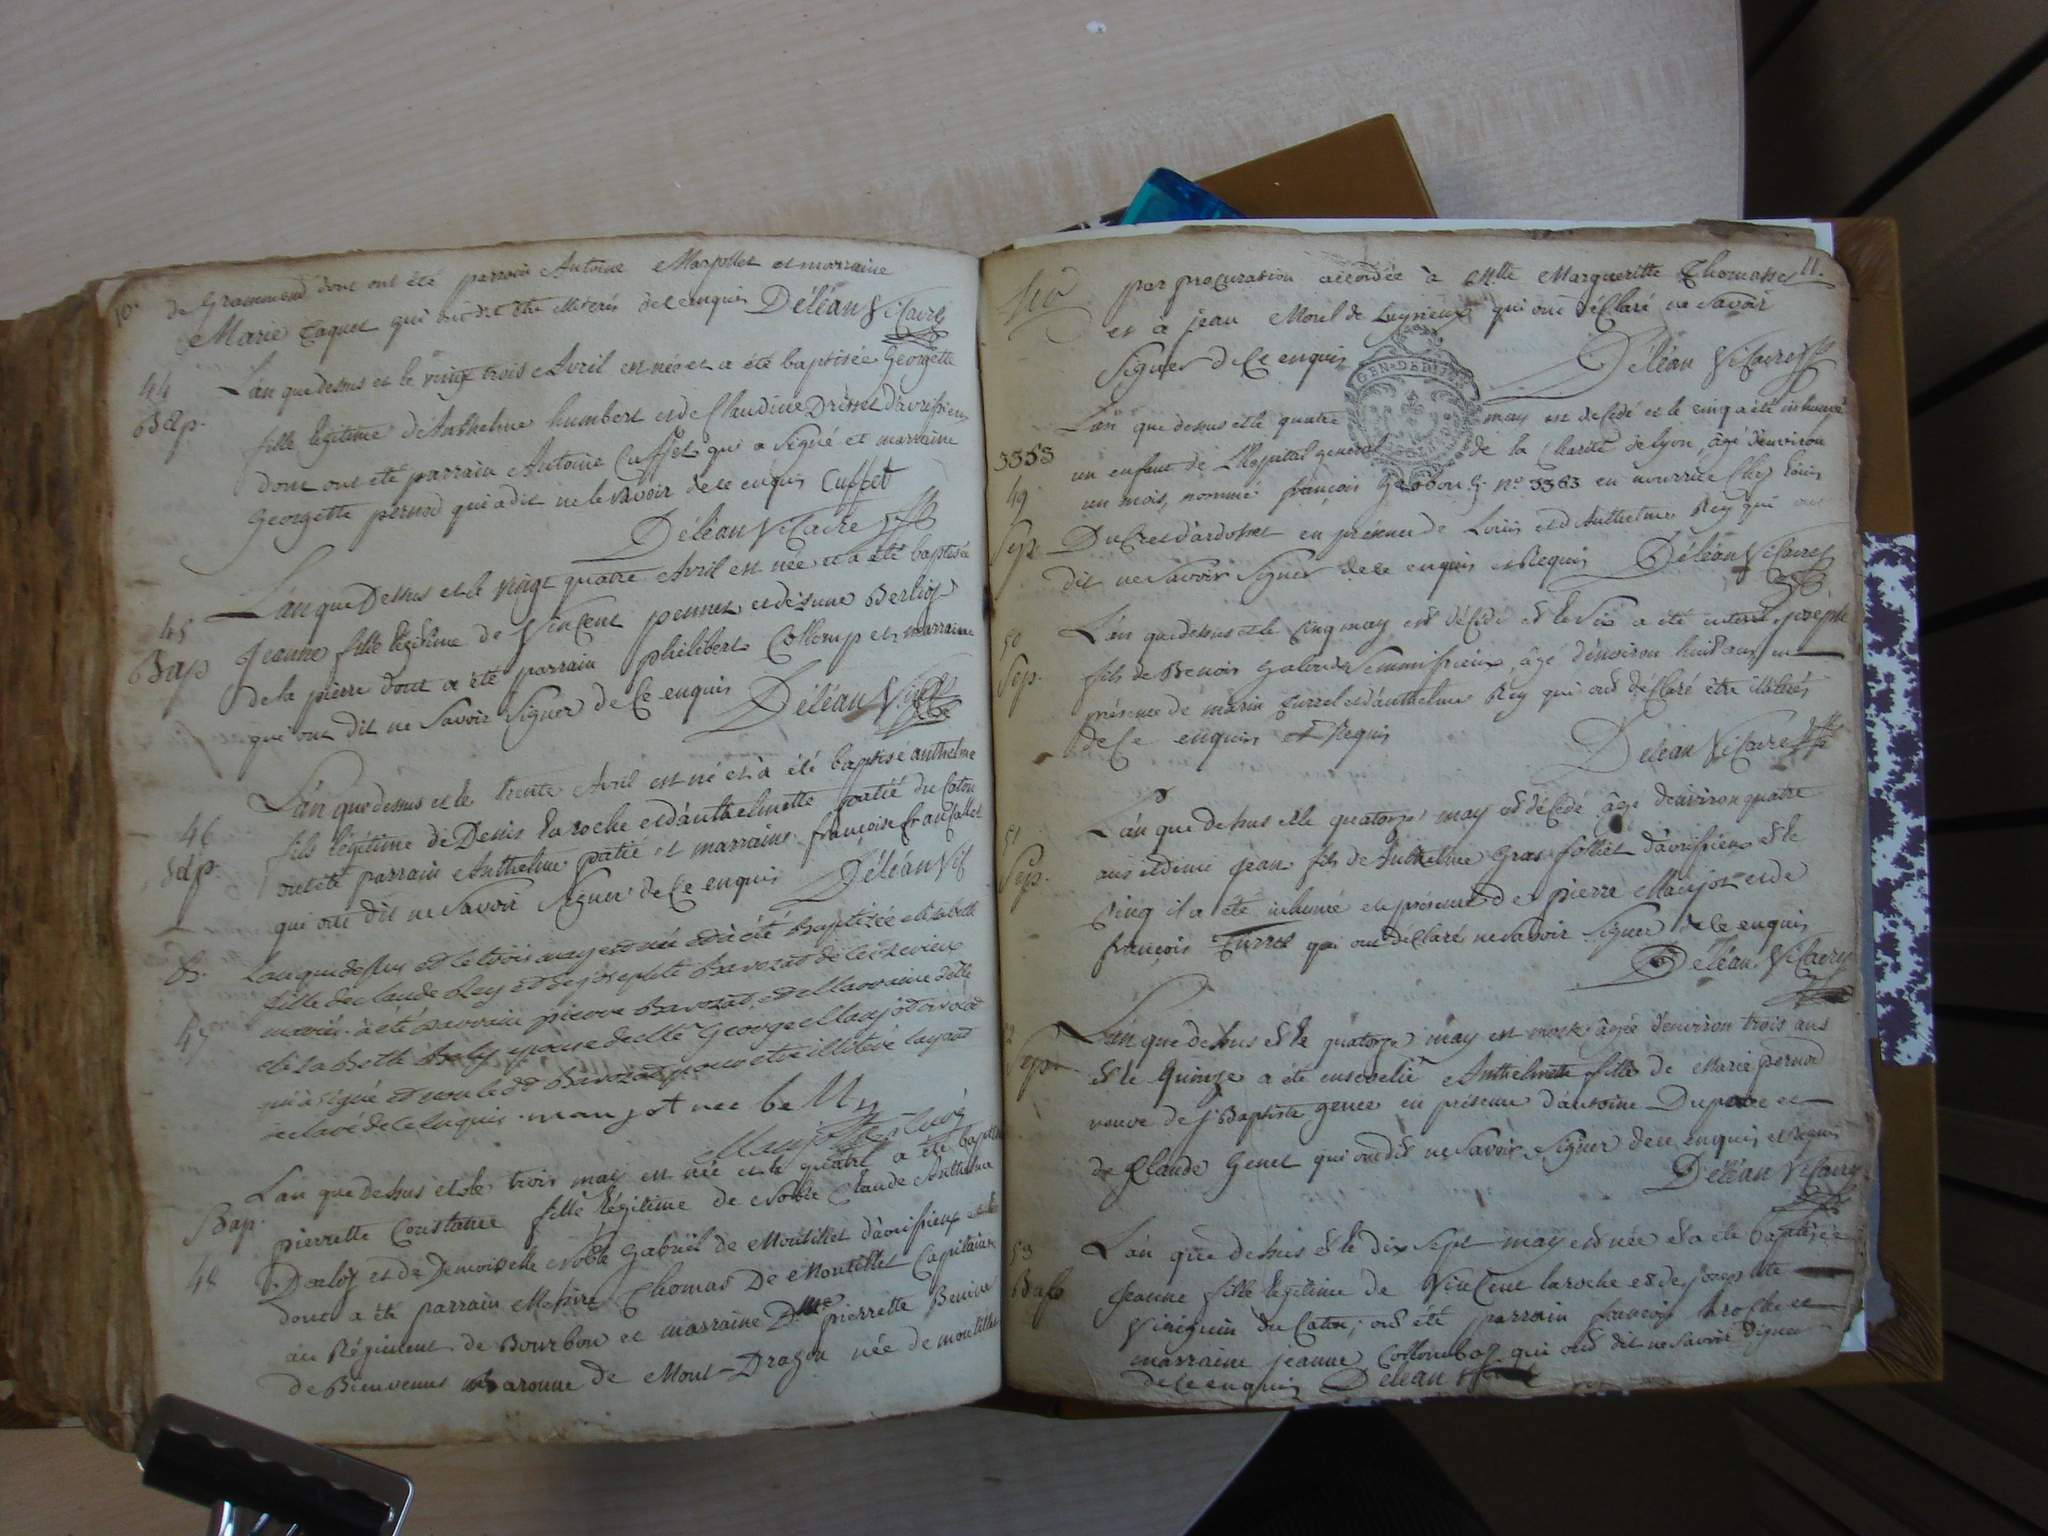 10.
de Grammend dont ont été parrain Antoine Marjollet et marraine
Marie Taquet qui ont dit être illiterés de ce enquis Déléan Vicaire
44
Bap.
L'an que dessus et le vingt trois Avril est née et a été baptisée Georgette
fille légitime d'Anthelme humbert et de Claudine Drisset d'avrissieu
dont ont été parrain Antoine Cuffet qui a signé et marraine
Georgette pernod qui a dit ne le savoir de ce enquis Cuffet
Déléan Vicaire
45
Bap
L'an que Dessus et le vingt quatre Avril est née et a été baptisée
Jeanne fille légitime de Vincent pernet et de Berlioz
de la pierre dont a été parrain philibert Collomp et marraine
qui ont dit ne savoir signer de Ce enquis Déléan
46
Bap.
L'an que dessus et le trente Avril est né et a été baptisé anthelme
fils légitime de Denis Laroche et d'anthelmette patié du Coton
ont été parrain Anthelme patié et marraine françoise
qui ont dit ne savoir signer de Ce enquis Déléan Vic
B.
47
L'an que dessus et le trois may est née et a été Baptisée elisabeth
fille de claude Rey et de josephte Bavozat de
mariés a été parrain pierre Bavozat et Marraine delle
elisabeth Belly epouse de Me George Manjot
qui a signé et non led Bavozat pour etre illiteré layant
declaré de ce enquis. manjot nee belly
Manjot
Bap.
48
L'an que dessus et le trois may est née et le quatre a été baptisée
pierrette Constance fille légitime de Noble Claude Anthelme
Darloz et de Demoiselle Noble Gabriël de Montillet d'avrissieux
dont a été parrain Messire Thomas De Montillet Capitaine
au Régiment de Bourbon et marraine Dme pierrette Benine
de Bienvenus Baronne de Mont-Dragon née de montillet
11.
par procuration accordée à Mlle Margueritte Thomasset
et à jean Morel de Luyrieux qui ont déclaré ne savoir
signer de Ce enquis Déléan Vicaire
GEN. DE
3363
49
Sep.
L'an que dessus et le quatre may est decedé et le cinq a été inhumé
un enfant de L'hopital general de la Charité de lyon, âgé d'environ
un mois, nommé françois No 3363 en nourrice Chez Louis
DuCret d'ardosset en présence de Louis et d'Anthelme Rey qui ont
dit ne savoir signer de ce enquis et Requis Déléan Vicaire
50
Sep.
L'an que dessus et le Cinq may est décedé et le six a été enterré joseph
fils de Benoit âgé d'environ huit ans en
présence de marin Turrel et d'anthelme Rey qui ont déclaré être illiterés
de Ce enquis et Requis Déléan Vicaire
51
Sep.
L'an que dessus et le quatorze may est décedé âgé d'environ quatre
ans et demi Jean fils de Anthelme Gras folliet d'avrissieux et le
quinze il a été inhumé en présence de pierre Manjot et de
françois Turrel qui ont déclaré ne savoir signer de Ce enquis
Déléan Vicaire
Sep.
L'an que dessus et le quatorze may est morte âgée d'environ trois ans
et le Quinze a été ensevelie Anthelmette fille de Marie pernod
veuve de j. Baptiste genet en présence d'antoine Dupare et
de Claude Genet qui ont dit ne savoir signer de ce enquis et Requis
Déléan Vicaire
53
Bap
L'an que dessus et le dix sept may est née et a été baptisée
Jeanne fille légitime de Vincent laroche et de josephte
Vinquin du Coton; ont été parrain françois broche et
marraine jeanne Collomboz qui ont dit ne savoir signer
de ce enquis Déléan